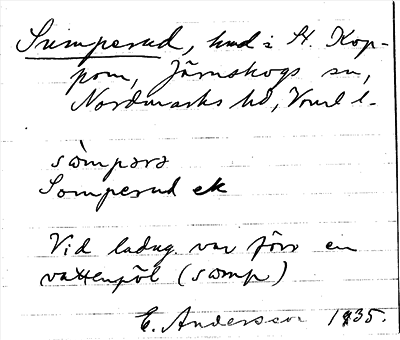 Sumperud, hmd i St. Kop-
pom, Järnskogs sn,
Nordmarks hd, Vrml l.
sòmpərə
Somperud ek
Vid ladug. var förr en
vattenpöl (sœmp)
E. Andersson 1935.